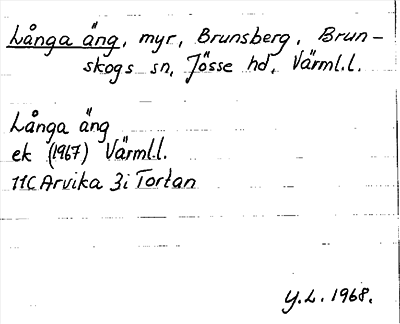 Långa äng, myr, Brunsberg, Brun-
skogs sn, Jösse hd, Värml.l.
Långa äng
ek (1967) Värml.l.
11C Arvika 3i Tortan
Y.L. 1968.